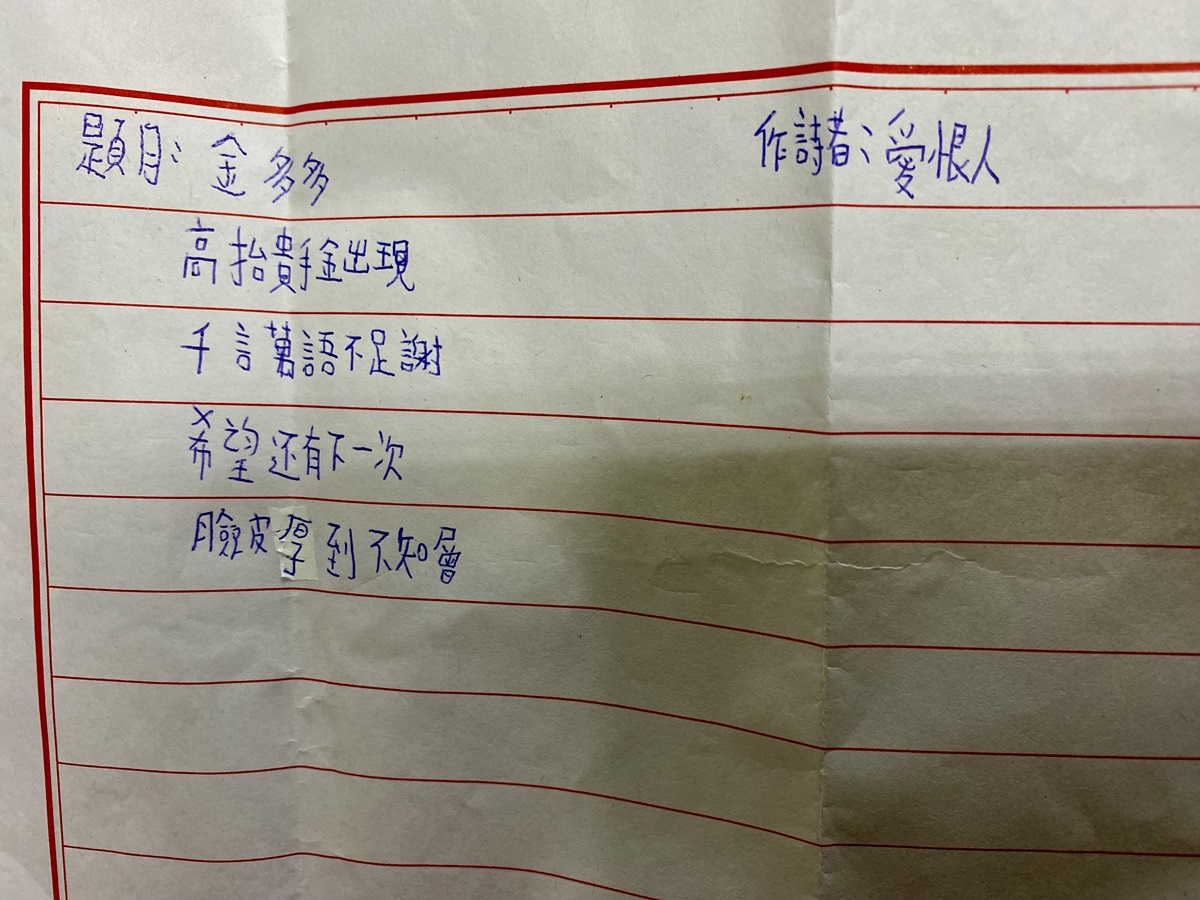 題目：金多多 作詩者：愛恨人
高抬貴手金出現
千言萬語不足謝
希望还有下一次
臉皮厚到不知層